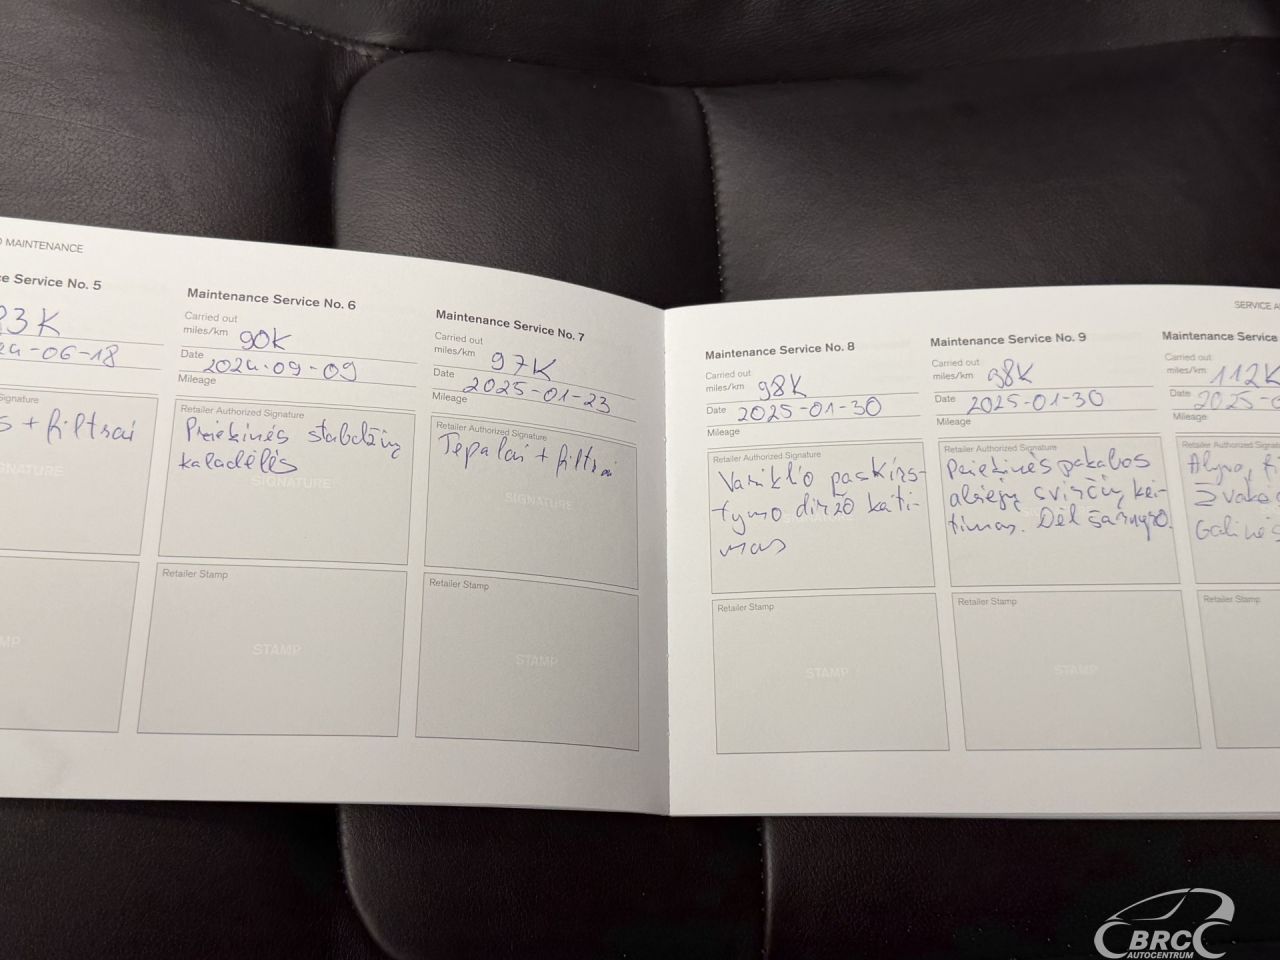 D MAINTENANCE
ce Service No. 5
93K
24-06-18
Signature
s + filtrai
GNATURE
MP
Maintenance Service No. 6
Carried out
miles/km 90K
Date 2024.09-09
Mileage
Retailer Authorized Signature
Priekinės stabdžių
kaladėlės
SIGNATURE
Retailer Stamp
STAMP
Maintenance Service No. 7
Carried out
miles/km 97K
Date 2025-01-23
Mileage
Retailer Authorized Signature
Tepalai + filtrai
SIGNATURE
Retailer Stamp
STAMP
SERVICE A
Maintenance Service No. 8
Carried out
miles/km 98K
Date 2025-01-30
Mileage
Retailer Authorized Signature
Variklio paskirs-
tymo diržo keiti-
mas
SIGNATURE
Retailer Stamp
STAMP
Maintenance Service No. 9
Carried out
miles/km 98K
Date 2025-01-30
Mileage
Retailer Authorized Signature
Priekinės pakabos
alsiejų svirčių kei-
timas. Dėl šarnyro.
Retailer Stamp
STAMP
Maintenance Service
Carried out
miles/km 112K
Date 2025-0
Mileage
Retailer Authorized Signat
Alyva, fi
Galinės
Retailer Stamp
BRC
AUTOCENTRUM